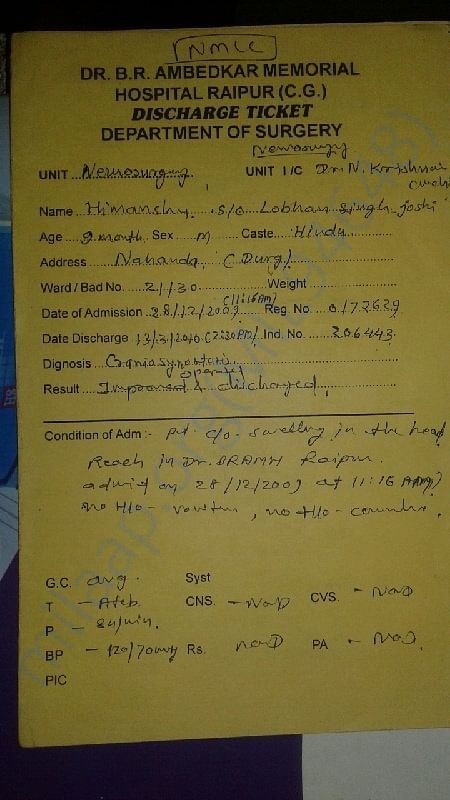 NMCC
DR. B.R. AMBEDKAR MEMORIAL
HOSPITAL RAIPUR (C.G.)
DISCHARGE TICKET
DEPARTMENT OF SURGERY
Neurosurgery
UNIT Neurosurgery UNIT I/C Dr. N. Krishna
Name Himanshu S/o Lobhan Singh Joshi
Age 9 month Sex M Caste Hindu
Address Nahanda, (Durg)
Ward / Bad No. 21/30 Weight
(11:16 AM)
Date of Admission 28/12/2009 Reg. No. 0172629
Date Discharge 13/3/2010 (2:30 PM) Ind. No. 206443
Dignosis Craniosynostosis
operated
Result Improved & discharged.
Condition of Adm :- Pt c/o - swelling in the head
Reach in Dr. BRAMH Raipur.
admit on 28/12/2009 at 11:16 AM)
no H/o - , no H/o -
G.C. avg. Syst
T - Afeb. CNS. - NAD CVS. - NAD
P - 84/min.
BP - 120/70 mmHg Rs. NAD PA - NAD
PIC
milaap.org